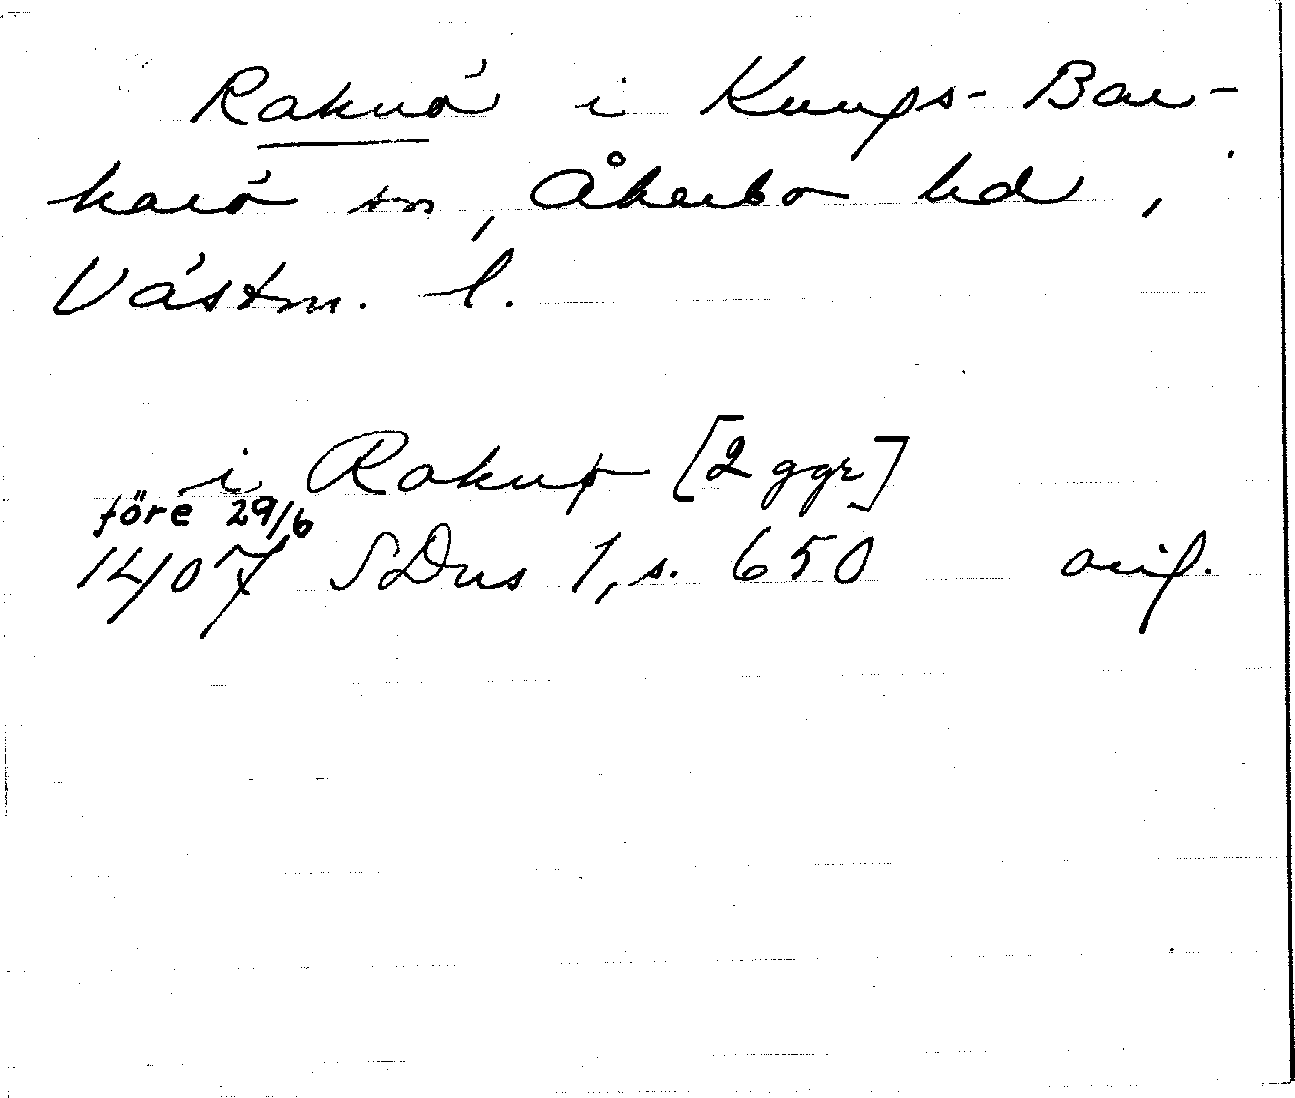 Raknö i Kungs-Bar-
karö sn, Åkerbo hd,
Västm. l.
i Raknø [2 ggr]
före 29/6
1407 SDns 1, s. 650 orig.